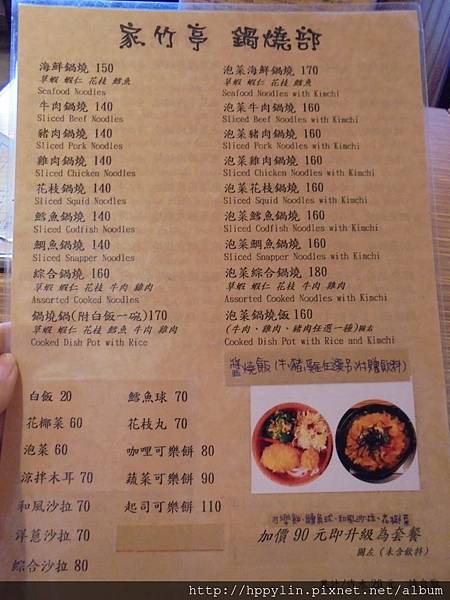 家竹亭 鍋燒部
海鮮鍋燒 150
草蝦 蝦仁 花枝 鱈魚
Seafood Noodles
牛肉鍋燒 140
Sliced Beef Noodles
豬肉鍋燒 140
Sliced Pork Noodles
雞肉鍋燒 140
Sliced Chicken Noodles
花枝鍋燒 140
Sliced Squid Noodles
鱈魚鍋燒 140
Sliced Codfish Noodles
鯛魚鍋燒 140
Sliced Snapper Noodles
綜合鍋燒 160
草蝦 蝦仁 花枝 牛肉 雞肉
Assorted Cooked Noodles
鍋燒鍋(附白飯一碗)170
草蝦 蝦仁 花枝 鱈魚 牛肉 雞肉
Cooked Dish Pot with Rice
泡菜海鮮鍋燒 170
草蝦 蝦仁 花枝 鱈魚
Seafood Noodles with Kimchi
泡菜牛肉鍋燒 160
Sliced Beef Noodles with Kimchi
泡菜豬肉鍋燒 160
Sliced Pork Noodles with Kimchi
泡菜雞肉鍋燒 160
Sliced Chicken Noodles with Kimchi
泡菜花枝鍋燒 160
Sliced Squid Noodles with Kimchi
泡菜鱈魚鍋燒 160
Sliced Codfish Noodles with Kimchi
泡菜鯛魚鍋燒 160
Sliced Snapper Noodles with Kimchi
泡菜綜合鍋燒 180
草蝦 蝦仁 花枝 牛肉 雞肉
Assorted Cooked Noodles with Kimchi
泡菜鍋燒飯 160
(牛肉、雞肉、豬肉任選一種)圖右
Cooked Dish Pot with Rice and Kimchi
醬燒飯(牛,豬,雞任選另附贈飲料)
白飯 20
花椰菜 60
泡菜 60
涼拌木耳 70
和風沙拉 70
洋蔥沙拉 70
綜合沙拉 80
鱈魚球 70
花枝丸 70
咖哩可樂餅 80
蔬菜可樂餅 90
起司可樂餅 110
可樂餅、鱈魚球、和風沙拉、花椰菜
加價 90 元即升級為套餐
圖左 (未含飲料)
http://hppylin.pixnet.net/album